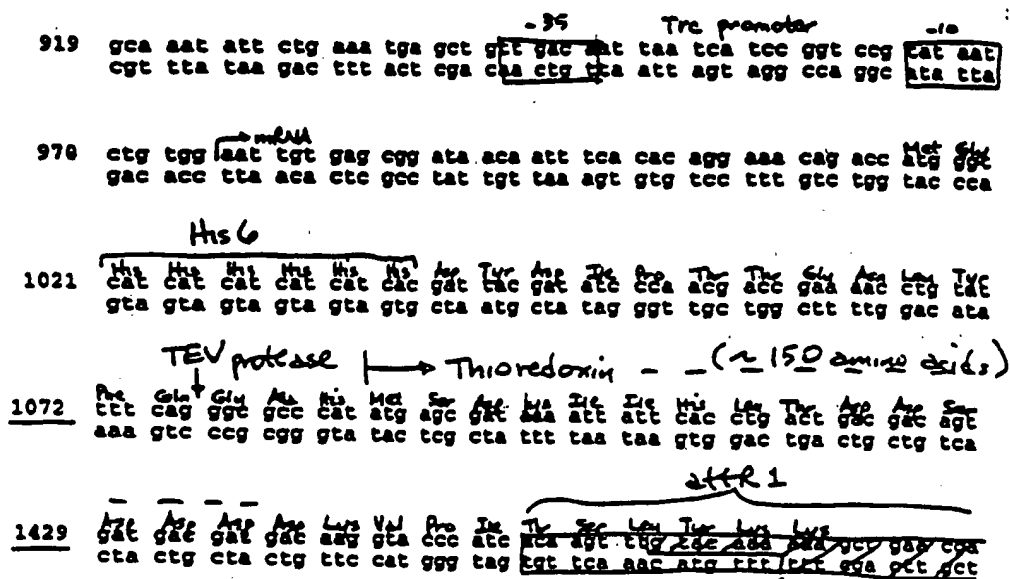 -35 Trc promoter -10
919 gca aat att ctg aaa tga gct gtt gac aat taa tca tcc ggt ccg tat aat
cgt tta taa gac ttt act cga caa ctg tta att agt agg cca ggc ata tta
mRNA Met Gly
970 ctg tgg aat tgt gag cgg ata aca att tca cac agg aaa cag acc atg ggt
gac acc tta aca ctc gcc tat tgt taa agt gtg tcc ttt gtc tgg tac cca
His 6
His His His His His His Asp Tyr Asp Ile Pro Thr Thr Gly Asn Leu Tyr
1021 cat cat cat cat cat cac gat tac gat atc cca acg acc gaa aac ctg tat
gta gta gta gta gta gtg cta atg cta tag ggt tgc tgg ctt ttg gac ata
TEV protease Thioredoxin - - (~ 150 amino acids)
Phe Gln Gly Ala His Met Ser Asp Lys Ile Ile His Leu Thr Asp Asp Ser
1072 ttt cag ggc gcc cat atg agc gat aaa att att cac ctg act gac gac agt
aaa gtc ccg cgg gta tac tcg cta ttt taa taa gtg gac tga ctg ctg tca
attR 1
Asp Asp Asp Lys Val Pro Ile Thr Ser Leu Tyr Lys Lys
1429 gat gac gat gac aag gta ccc atc aca agt ttg tac aaa aaa gct gaa cga
cta ctg cta ctg ttc cat ggg tag tgt tca aac atg ttt ttt cga ctt gct